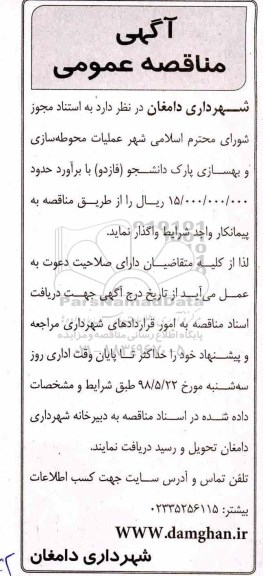 آگهی
مناقصه عمومی
شهرداری دامغان در نظر دارد به استناد مجوز
شورای محترم اسلامی شهر عملیات محوطه‌سازی
و بهسازی پارک دانشجو (فازدو) با برآورد حدود
۱۵/۰۰۰/۰۰۰/۰۰۰ ریال را از طریق مناقصه به
پیمانکار واجد شرایط واگذار نماید.
لذا از کلیه متقاضیان دارای صلاحیت دعوت به
عمل می‌آید از تاریخ درج آگهی جهت دریافت
اسناد مناقصه به امور قراردادهای شهرداری مراجعه
و پیشنهاد خود را حداکثر تا پایان وقت اداری روز
سه‌شنبه مورخ ۹۸/۵/۲۲ طبق شرایط و مشخصات
داده شده در اسناد مناقصه به دبیرخانه شهرداری
دامغان تحویل و رسید دریافت نمایند.
تلفن تماس و آدرس سایت جهت کسب اطلاعات
بیشتر: ۰۲۳۳۵۲۵۶۱۱۵
WWW.damghan.ir
شهرداری دامغان